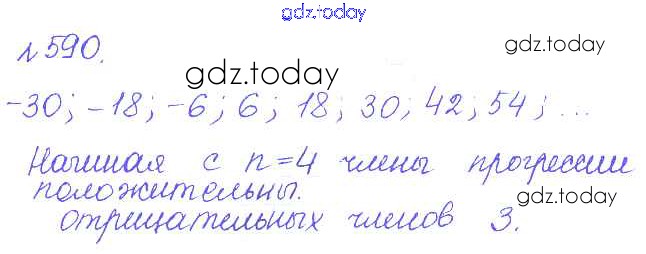 gdz.today
№590.
gdz.today
-30; -18; -6; 6; 18; 30; 42; 54; ...
Начиная с n=4 члены прогрессии
gdz.today
положительны.
gdz.today
отрицательных членов 3.